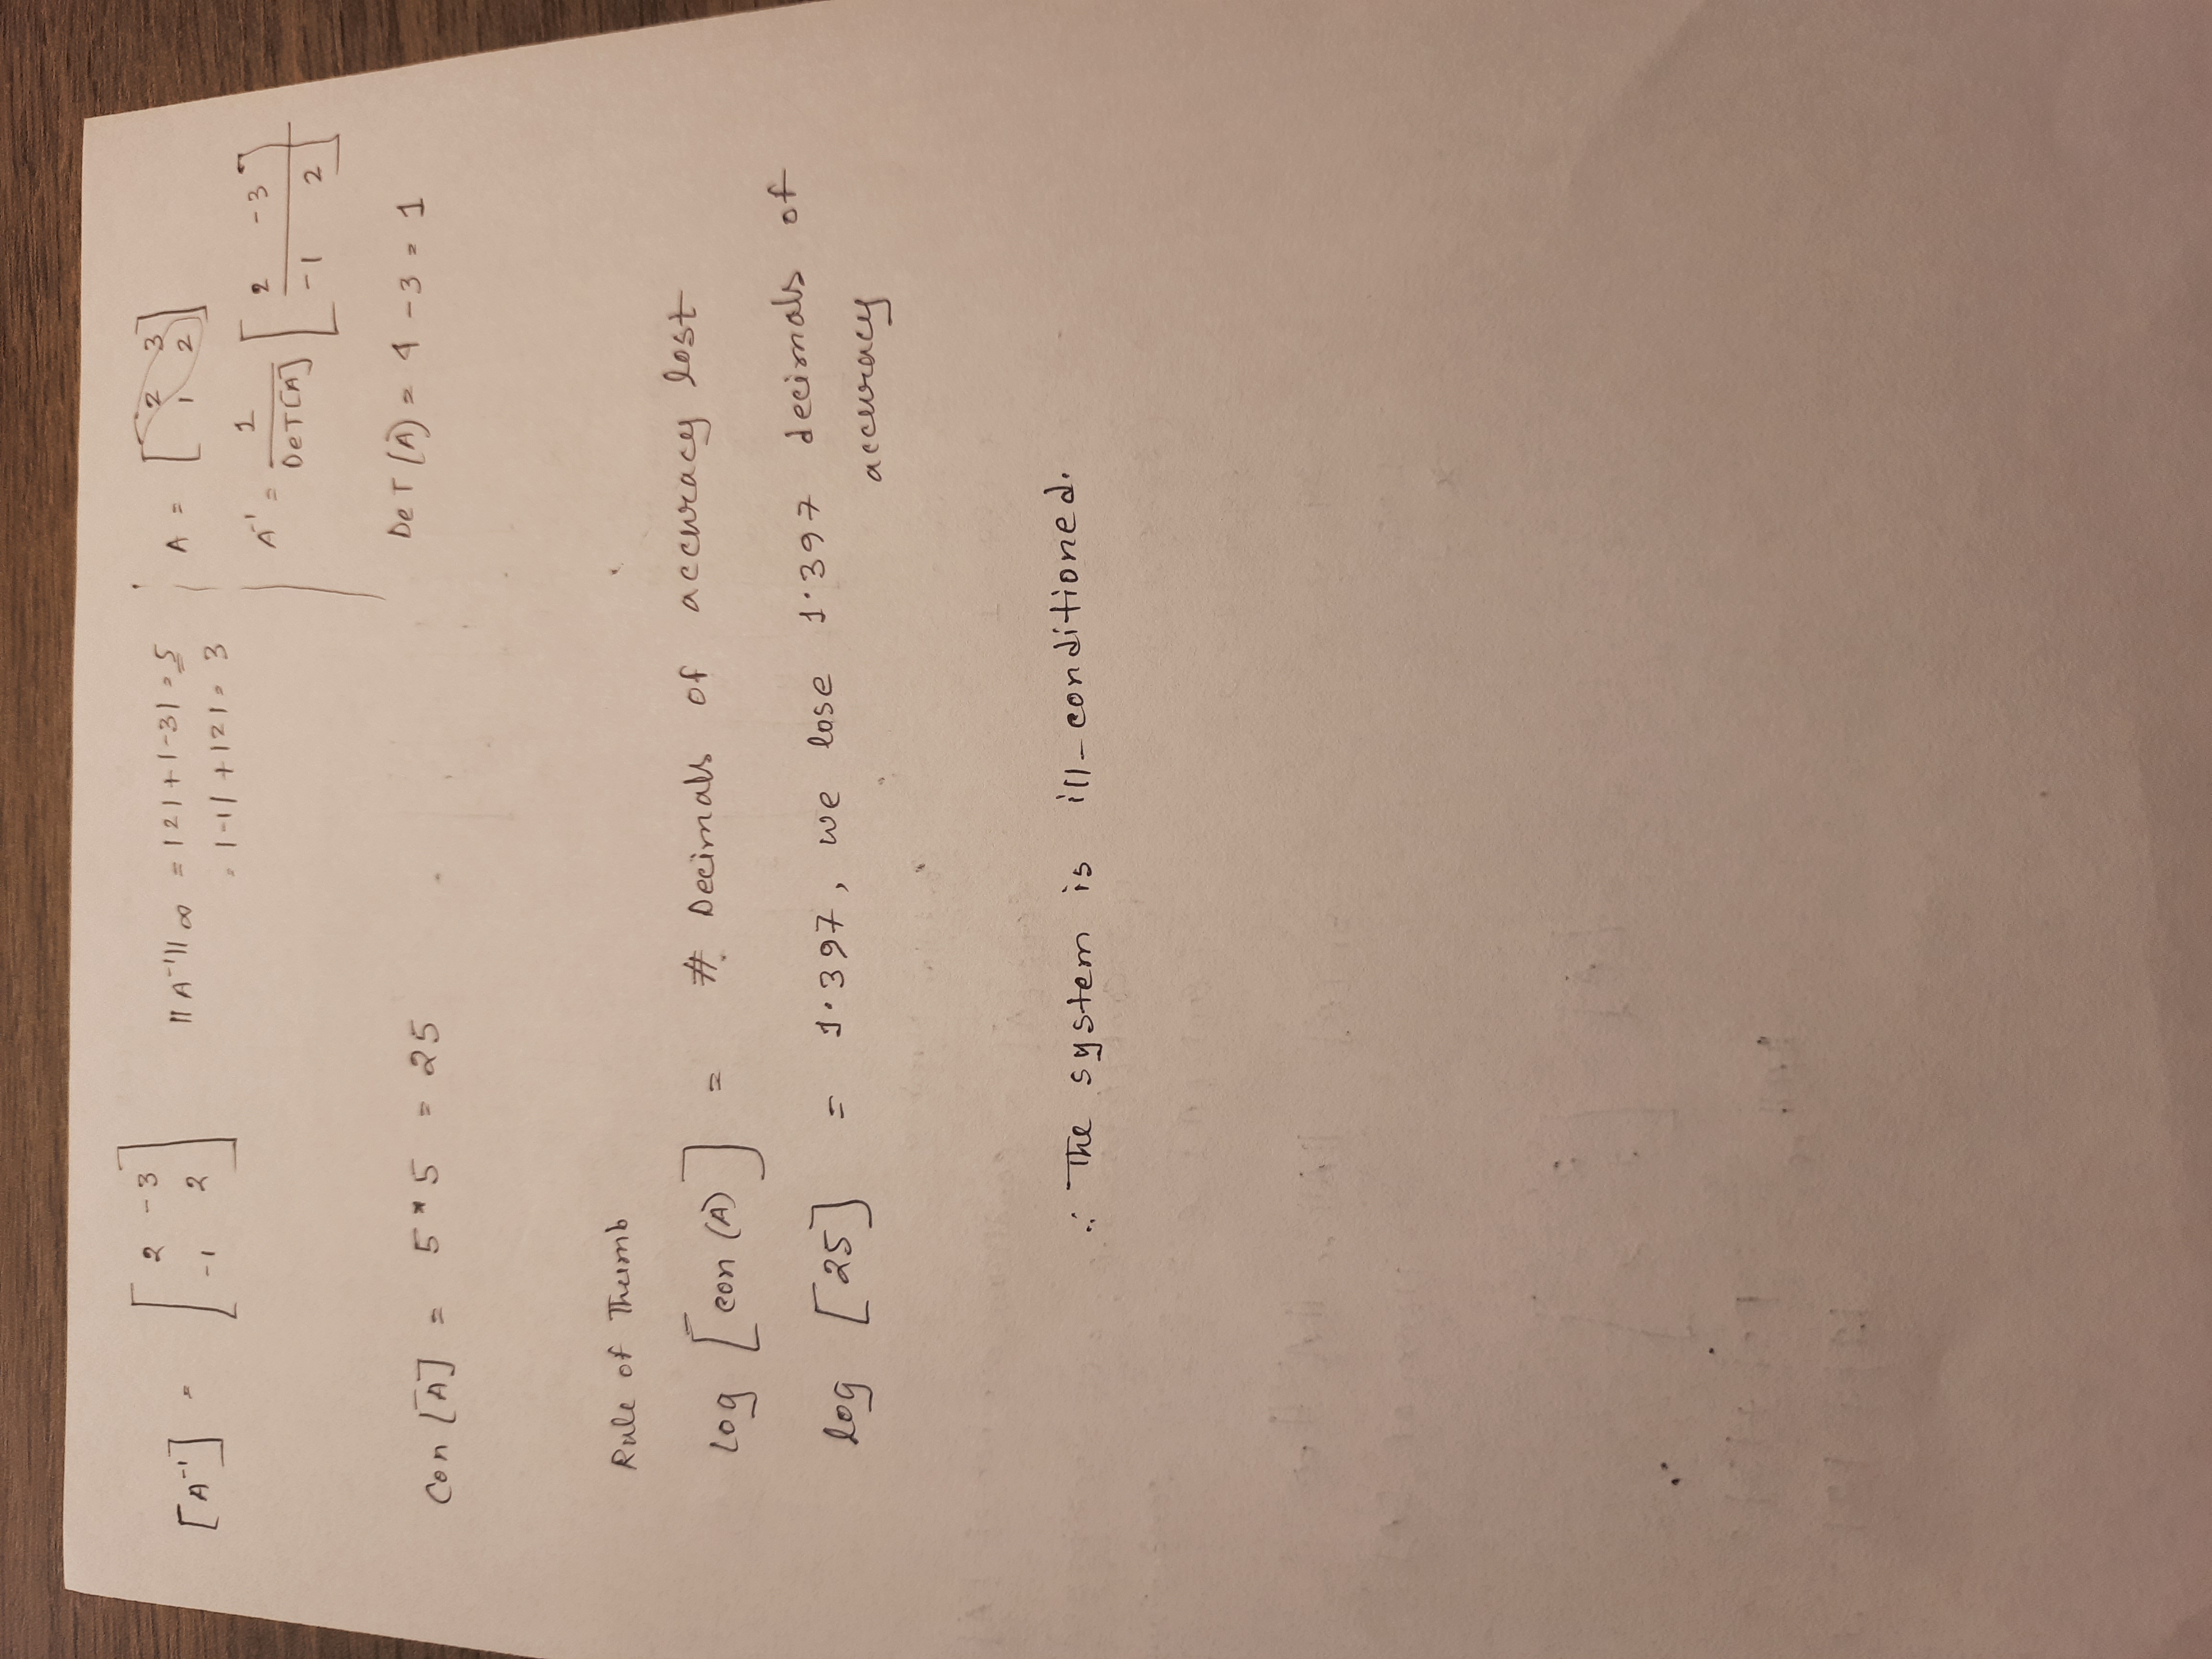 [A⁻¹] = [ 2 -3
-1 2 ]
||A⁻¹||∞ = |2| + |-3| = 5
= |-1| + |2| = 3
Con [A] = 5 * 5 = 25
A = [ 2 3
1 2 ]
A⁻¹ = 1 / DeT[A] [ 2 -3
-1 2 ]
DeT [A] = 4 - 3 = 1
Rule of Thumb
Log [con (A)] = # Decimals of accuracy lost
log [25] = 1.397, we lose 1.397 decimals of
accuracy
∴ The system is ill-conditioned.